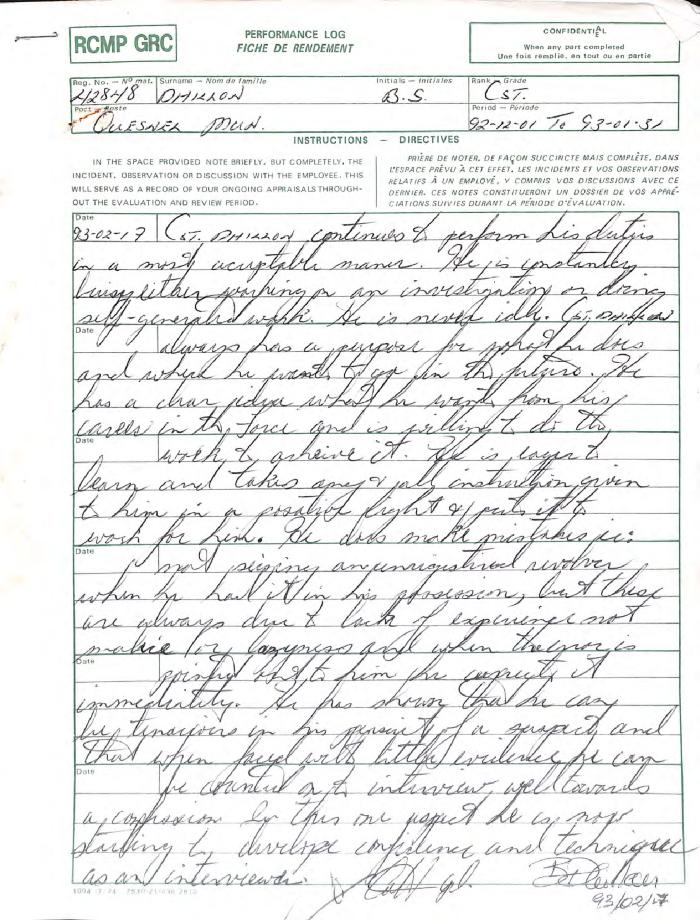 RCMP GRC
PERFORMANCE LOG
FICHE DE RENDEMENT
CONFIDENTIAL
When any part completed
Une fois remplie, en tout ou en partie
Reg. No. — Nº mat.
Surname — Nom de famille
Initials — Initiales
Rank — Grade
42848
DHILLON
B.S.
CST.
Post — Poste
Period — Période
QUESNEL MUN.
92-12-01 To 93-01-31
INSTRUCTIONS — DIRECTIVES
IN THE SPACE PROVIDED NOTE BRIEFLY, BUT COMPLETELY, THE
INCIDENT, OBSERVATION OR DISCUSSION WITH THE EMPLOYEE. THIS
WILL SERVE AS A RECORD OF YOUR ONGOING APPRAISALS THROUGH-
OUT THE EVALUATION AND REVIEW PERIOD.
PRIÈRE DE NOTER, DE FAÇON SUCCINTE MAIS COMPLÈTE, DANS
L'ESPACE PRÉVU À CET EFFET, LES INCIDENTS ET VOS OBSERVATIONS
RELATIFS À UN EMPLOYÉ, Y COMPRIS VOS DISCUSSIONS AVEC CE
DERNIER. CES NOTES CONSTITUERONT UN DOSSIER DE VOS APPRÉ-
CIATIONS SUIVIES DURANT LA PÉRIODE D'ÉVALUATION.
Date
93-02-17 CST. DHILLON continues to perform his duties
in a most acceptable maner. He is constantly
busy either working on an investigation or doing
self-generated work. He is never idle. CST. DHILLON
Date
always has a purpose for what he does
and where he wants to go in the future. He
has a clear idea what he wants from his
career in the Force and is willing to do the
Date
work to acheive it. He is eager to
learn and takes any & all instruction given
to him in a positive light & puts it to
work for him. He does make mistakes ie:
Date
not seizing an unregistered revolver
when he had it in his possession, but these
are always due to lack of experience not
malice or lazyness and when the error is
Date
pointed out to him he corrects it
immediatily. He has shown that he can
be tenacious in his persuit of a suspect and
that when faced with little evidence he can
Date
be counted on to interview well towards
a confession. In this one aspect he is now
starting to develope confidence and technique
as an interviewer.
93/02/17